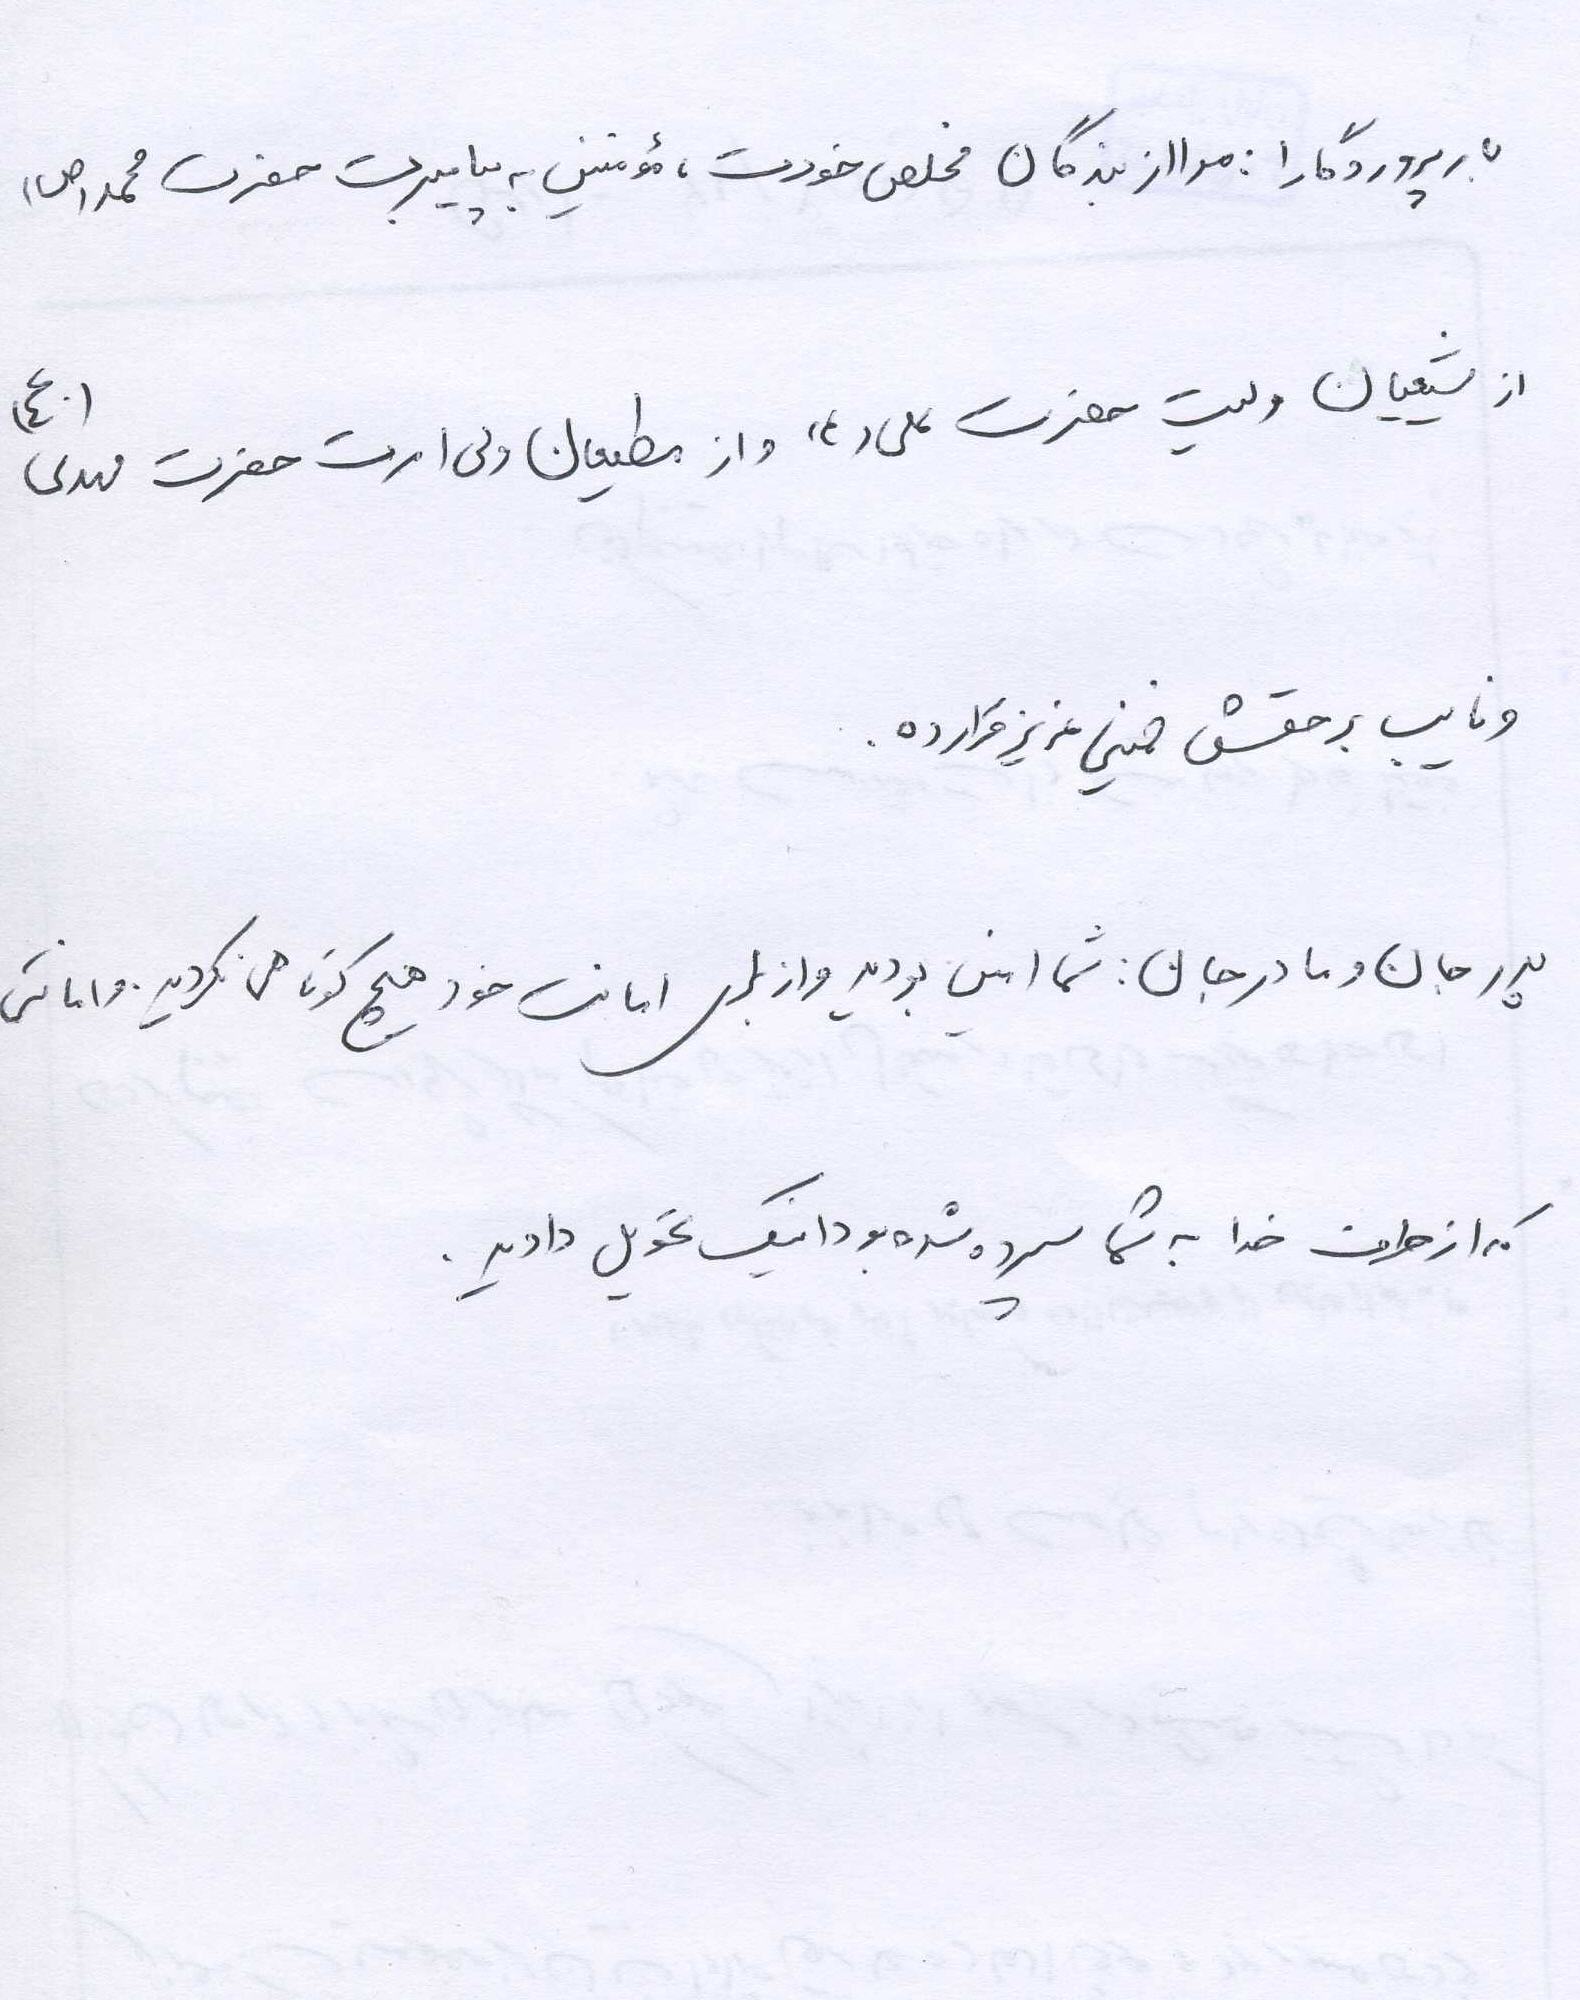 بار پروردگارا : مرا از بندگان مخلص خودت ، مؤمنین به پیامبرت حضرت محمد (ص)
از شیعیان ولیت حضرت علی (ع) و از مطیعان ولی امرت حضرت مهدی (عج)
و نایب بر حقش خمینی عزیز قرار ده .
پدر جان و مادر جان : شما امین بودید و از برای امانت خود هیچ کوتاهی نکردید . و امانتی
که از طرف خدا به شما سپرده شده بود اینک تحویل دادید .